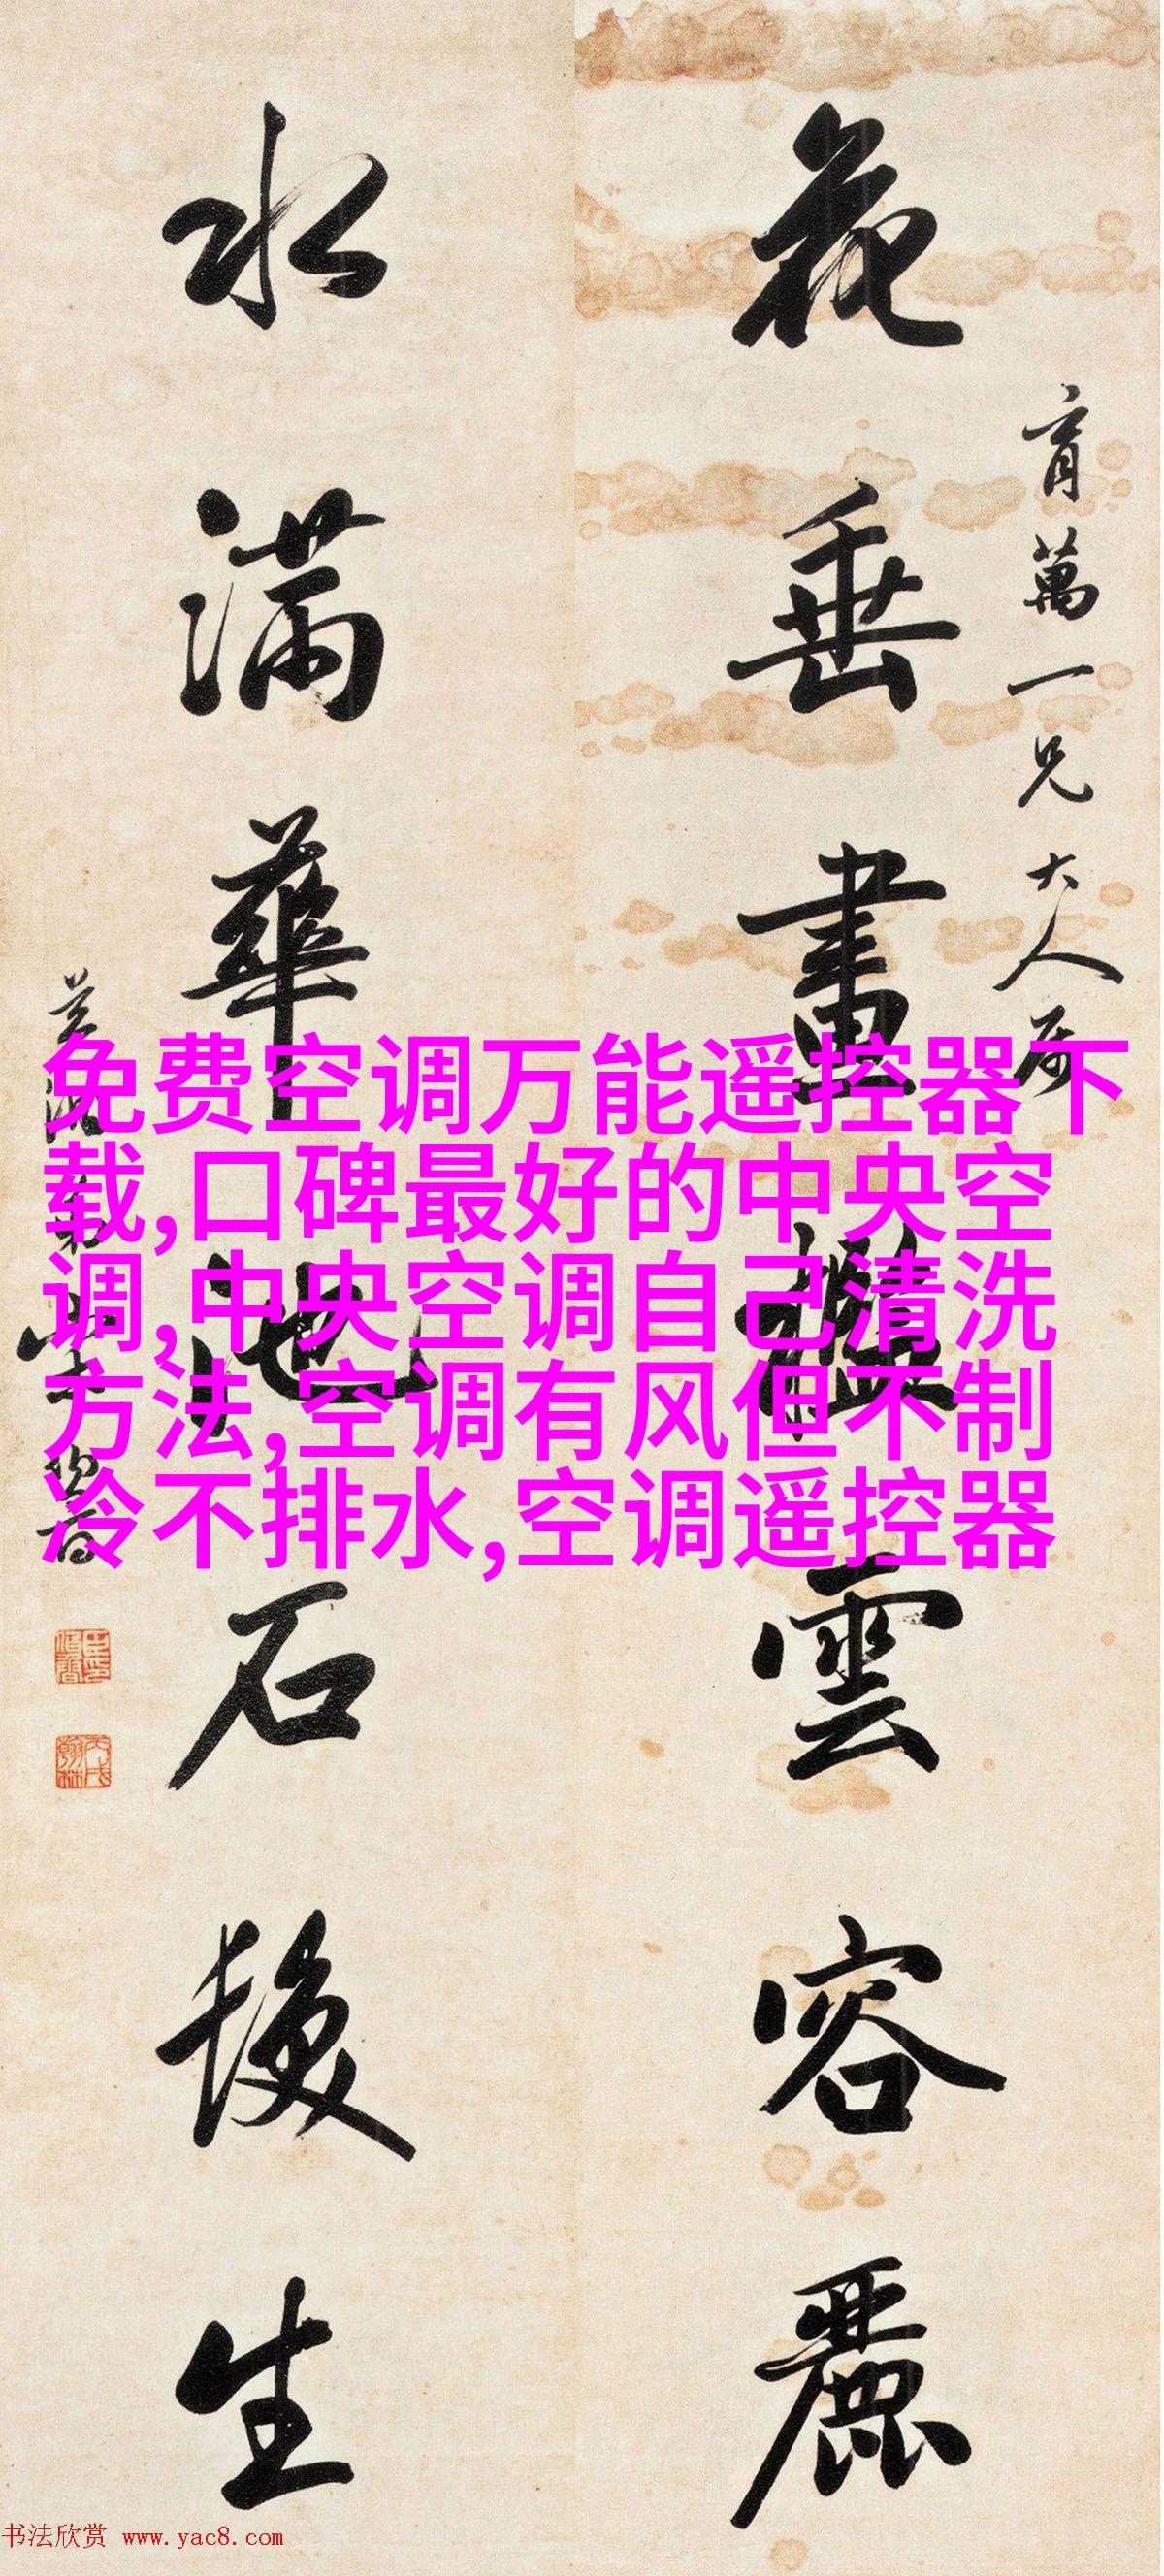 花垂畫檻雲容麗
育萬一兄大人属
水滿華池石後生
免费空调万能遥控器下
载,口碑最好的中央空
调,中央空调自己清洗
方法,空调有风但不制
冷不排水,空调遥控器
书法欣赏 www.yac8.com